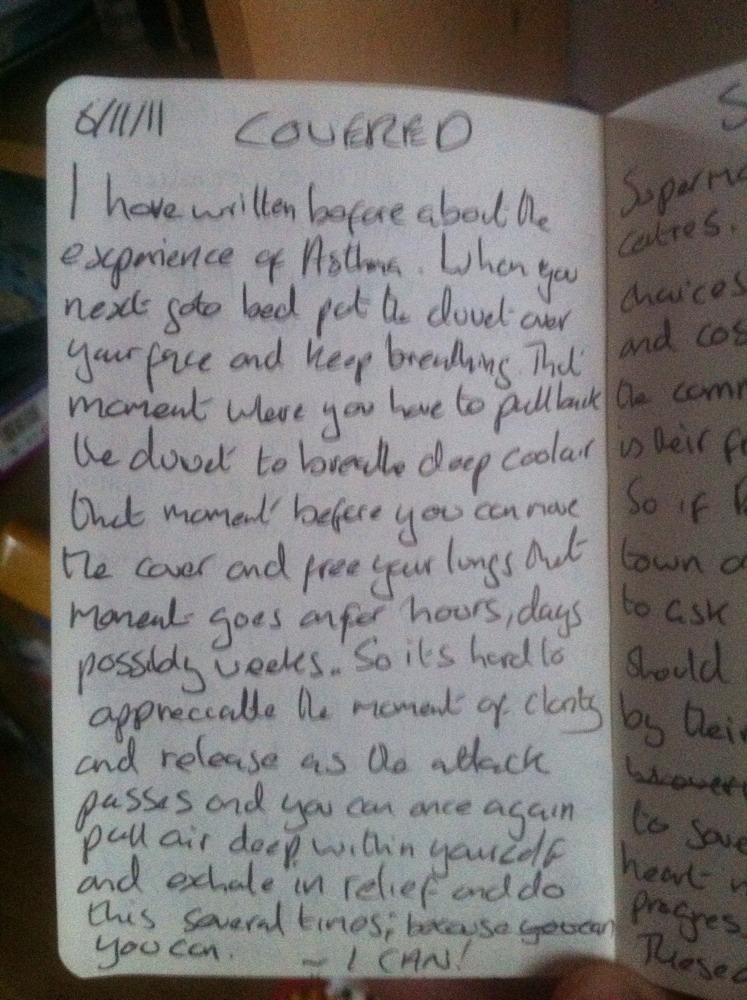 6/11/11 COVERED
I have written before about the
experience of Asthma. When you
next goto bed put the duvet over
your face and keep breathing. That
moment where you have to pull back
the duvet to breathe deep cool air
that moment before you can move
the cover and free your lungs that
moment goes on for hours, days
possibly weeks.. So it's hard to
appreciate the moment of clarity
and release as the attack
passes and you can once again
pull air deep within yourself
and exhale in relief and do
this several times; because you can
you can. ~ I CAN!
S
Superma
centres.
choices
and cos
the comm
is their fr
So if
town
to ask
should
by their
to save
heart
progres
These